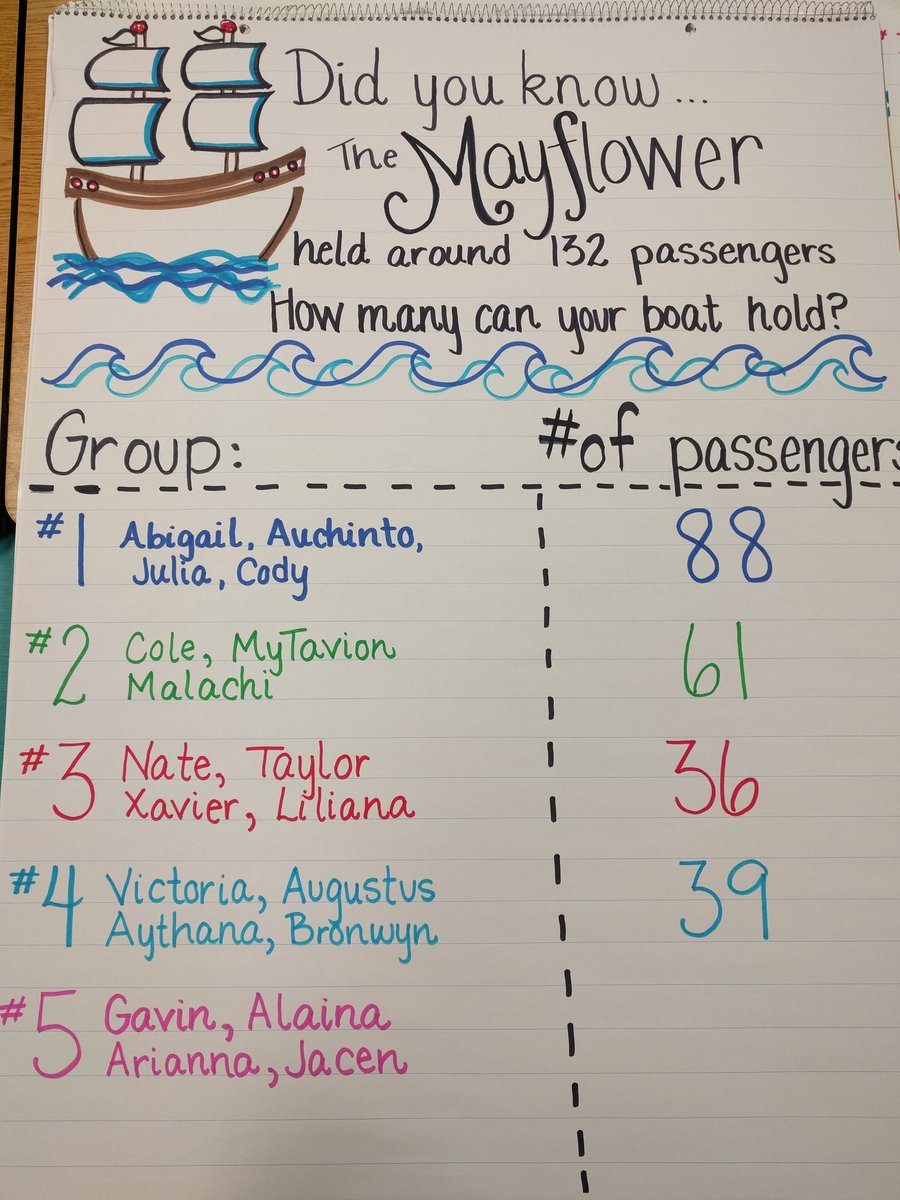 Did you know...
The Mayflower
held around 132 passengers
How many can your boat hold?
Group: #of passengers
#1 Abigail, Auchinto, 88
Julia, Cody
#2 Cole, MyTavion 61
Malachi
#3 Nate, Taylor 36
Xavier, Liliana
#4 Victoria, Augustus 39
Aythana, Bronwyn
#5 Gavin, Alaina
Arianna, Jacen